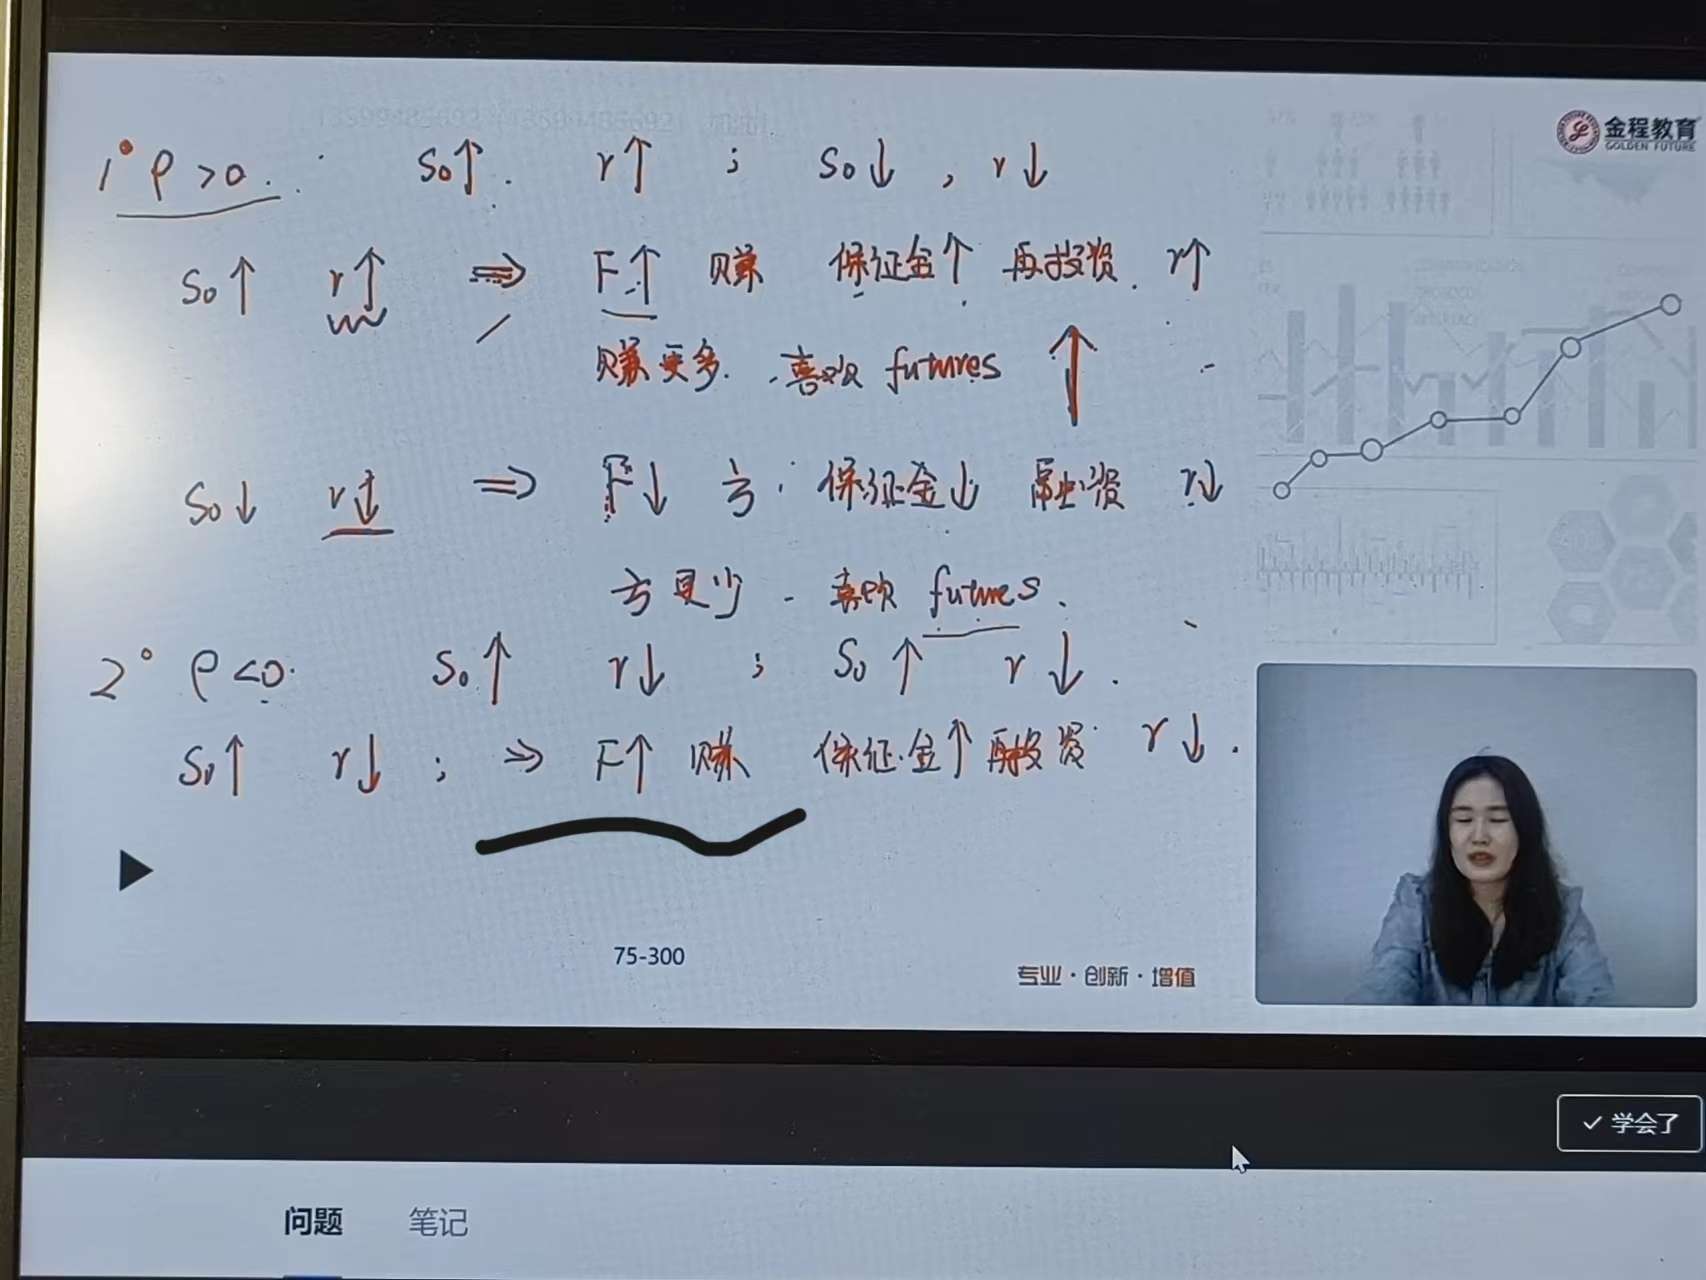 金程教育
GOLDEN FUTURE
1° ρ>0. : S₀↑. r↑ ; S₀↓, r↓
S₀↑ r↑ ⇒ F↑ 赚 保证金↑ 再投资. r↑
赚更多. 喜欢 futures ↑
S₀↓ r↓ ⇒ F↓ 亏. 保证金↓ 融资 r↓
亏更少. 喜欢 futures.
2° ρ<0. S₀↑ r↓ ; S₀↑ r↓.
S₀↑ r↓ ; ⇒ F↑ 赚 保证金↑ 再投资 r↓.
75-300
专业·创新·增值
✓ 学会了
问题 笔记